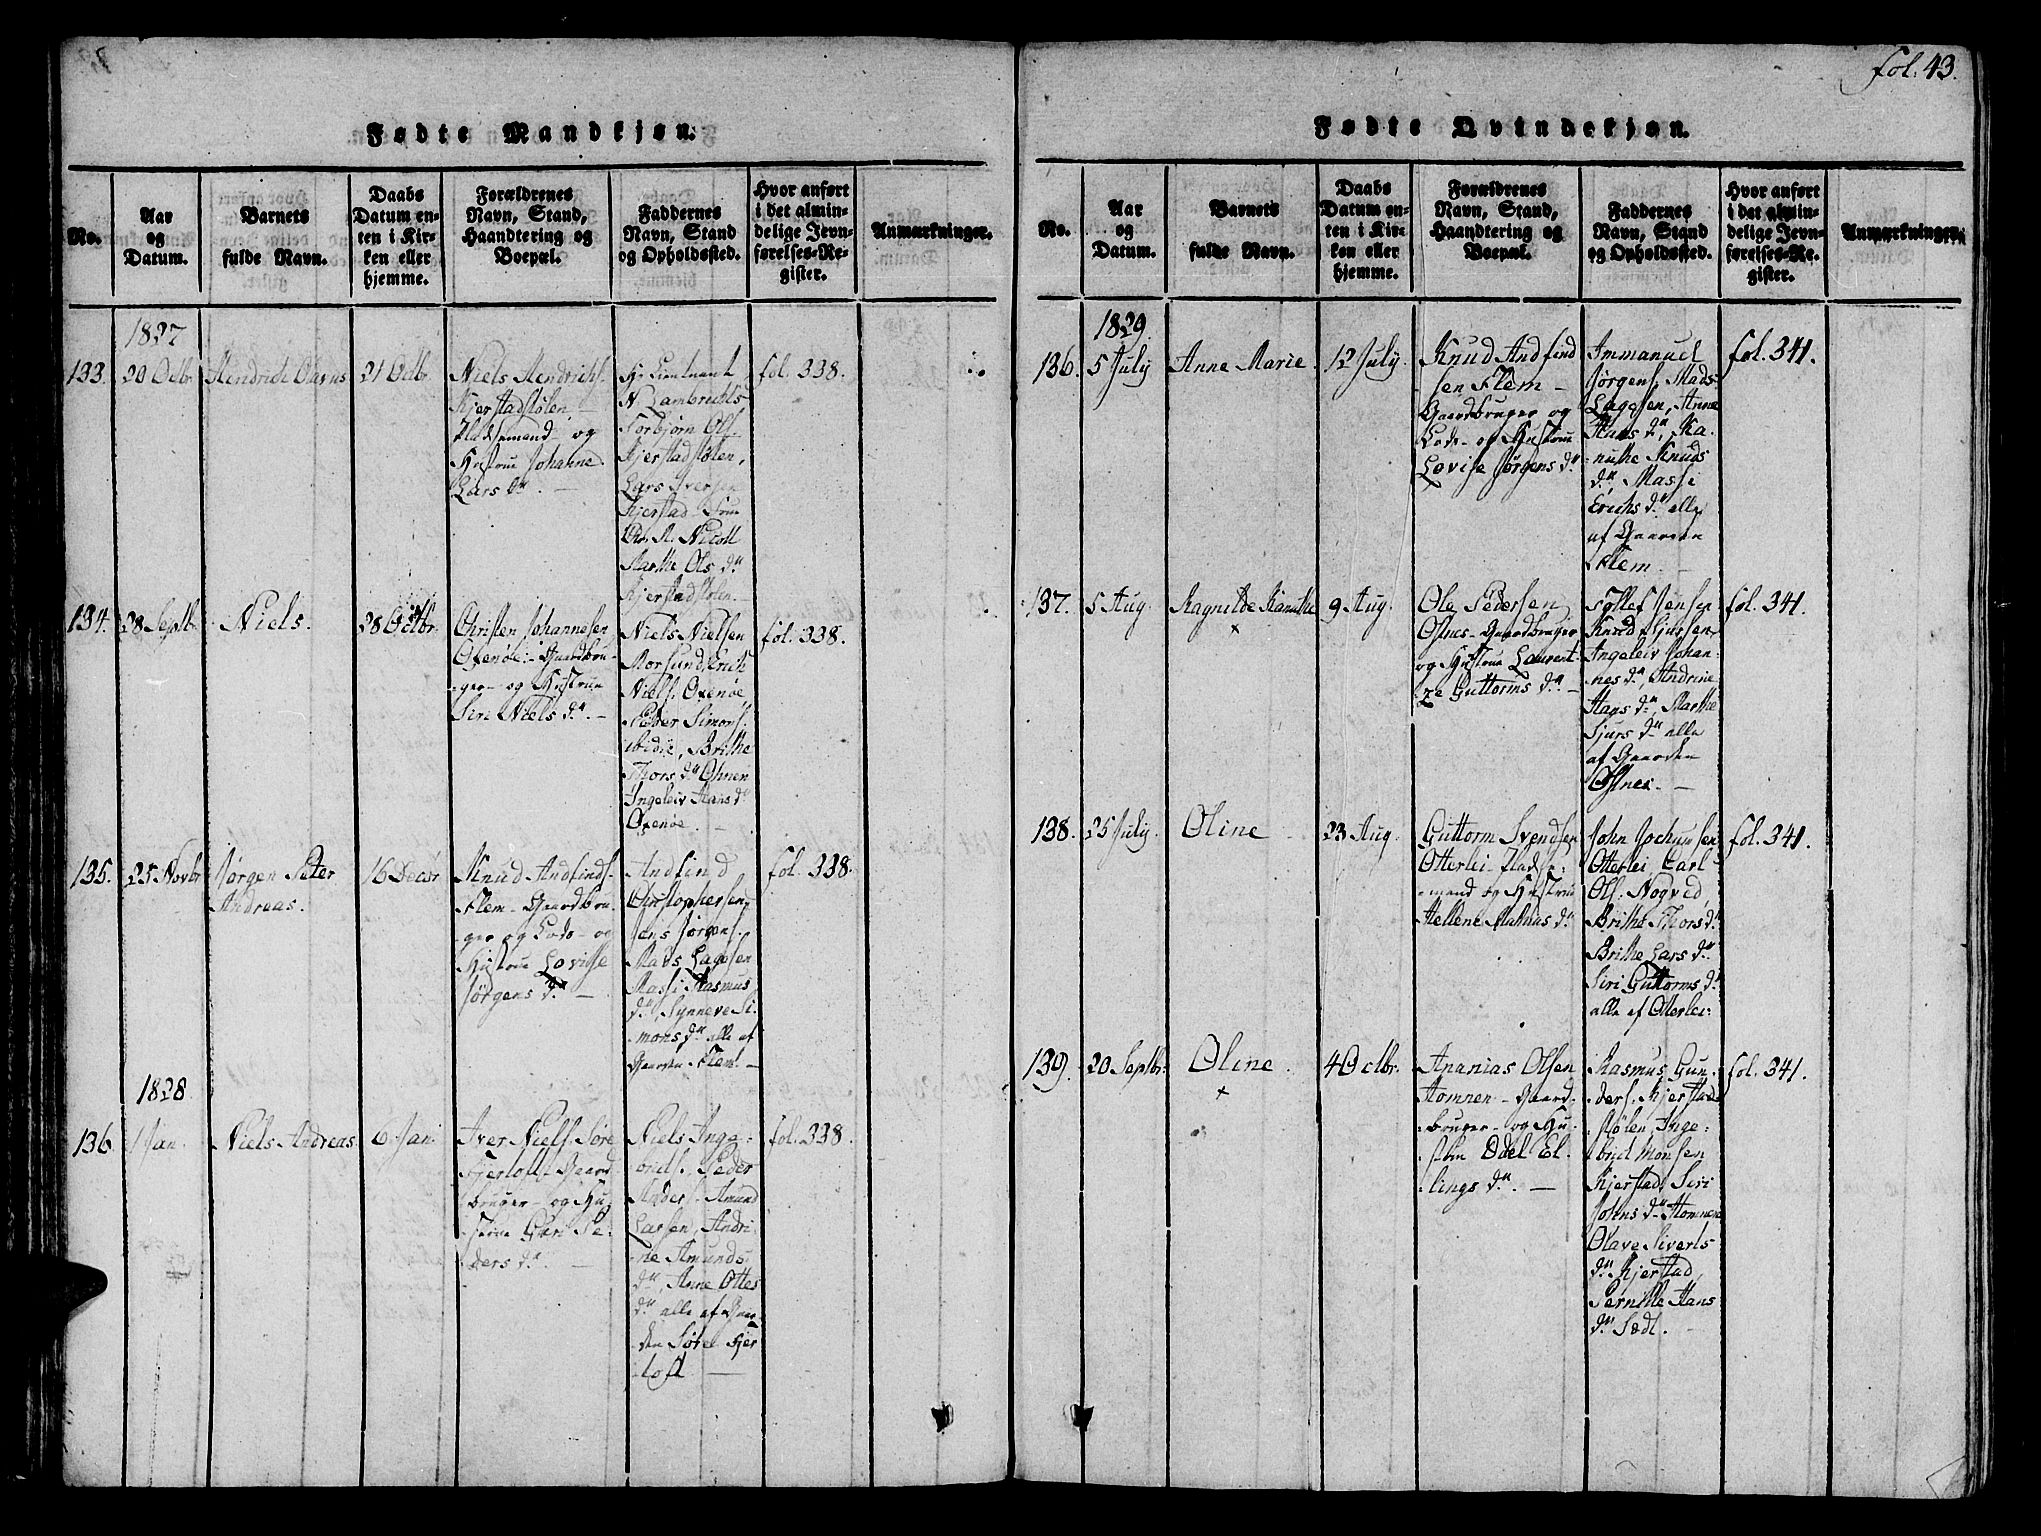 fol. 43.
Fødte Mandkjøn.
No.
Aar
og
Datum.
Barnets
fulde Navn.
Daabs
Datum en-
ten i Kir-
ken eller
hjemme.
Forældrenes
Navn, Stand,
Haandtering og
Boepæl.
Faddernes
Navn, Stand
og Opholdssted.
Hvor anført
i det almin-
delige Jevn-
førelses-Re-
gister.
Anmærkninger.
1827
133.
20 Octb.
Hendrich
21 Octb.
Niels Hendrichs.
Kjerstadstølen
Pladsemand og
Hustrue Johanne
Lars d.
Hr Lieutnant
N Lambrechts
Torbjørn Ols.
Kjerstadstølen,
Lars Iversen
Kjerstad
Marthe Ols d.
Kjerstadstølen
fol. 338.
134.
28 Septb.
Niels.
28 Octbr.
Christen Johannesen
Oxenøe - Gaardbru-
ger og Hustrue
Siri Niels d.
Niels Nielsen
Morsund, Erich
Niels. Oxenøe
Peder Simons.
ibidie, Brithe
Thors d. Ohnen
Ingeleiv Hans d.
Oxenøe.
fol. 338.
135.
25 Novbr
Jørgen Peter
Andreas.
16 Decbr
Knud Andfinds.
Flem - Gaardbru-
ger og Lods - og
Hustrue Lovise
Jørgens d.
Andfind
Christophersen,
Jens Jørgens.
Mads Lagesen
Massi Rasmus
d. Synneve Si-
mons d. alle af
Gaarden Flem.
fol. 338.
1828
136.
1 Jan.
Niels Andreas
6 Jan.
Iver Niels. Søre
Fjertoft Gaard-
bruger - og Hu-
strue Guri Pe-
ders d.
Niels Inge-
brids. Peder
Anders. Amund
Larsen, Andri-
ne Amunds
d. Anne Ottes
d. alle af Gaar-
den Søre Fjer-
toft
fol. 338.
Fødte Qvindekjøn.
No.
Aar
og
Datum.
Barnets
fulde Navn.
Daabs
Datum en-
ten i Kir-
ken eller
hjemme.
Forældrenes
Navn, Stand,
Haandtering og
Boepæl.
Faddernes
Navn, Stand
og Opholdssted.
Hvor anført
i det almin-
delige Jevn-
førelses-Re-
gister.
Anmærkninger.
1829
136.
5 July
Anne Marie
12 July.
Knud Andfind
sen Flem -
Gaardbruger og
Lods - og Hustrue
Lovise Jørgens d.
Immanuel
Jørgens. Mads
Lagesen, Anne
Hans d. Ka-
nuthe Knuds
d. Massi
Erichs d. alle
af Gaarden
Flem
fol. 341.
137.
5 Aug.
Ragnilde Kanuthe
9 Aug.
Ole Pedersen
Ostnes - Gaardbruger
og Hustrue Laurent-
ze Guttorms d.
Tollef Jensen
Knud Sjursen
Ingeleiv Johan-
nes d. Andrine
Hans d. Marthe
Sjurs d. alle
af Gaarden
Ostnes.
fol. 341.
138.
25 July.
Oline
23 Aug.
Guttorm Svendsen
Otterlei Plads-
mand og Hustrue
Hellene Mathias d.
John Jochumsen
Otterlei Carl
Ols. Nogved,
Brithe Thors d.
Brithe Lars d.
Siri Guttorms d.
alle af Otterlei.
fol. 341.
139.
20 Septbr.
Oline
4 Octbr.
Ananias Olsen
Homnen - Gaard-
bruger - og Hu-
strue Odel El-
lings d.
Rasmus Gun-
ders. Kjerstad-
stølen Inge-
brid Monsen
Kjerstad, Siri
Johns d. Homnen
Olave Siverts
d. Kjerstad
Pernille Hans
d. Sædt.
fol. 341.